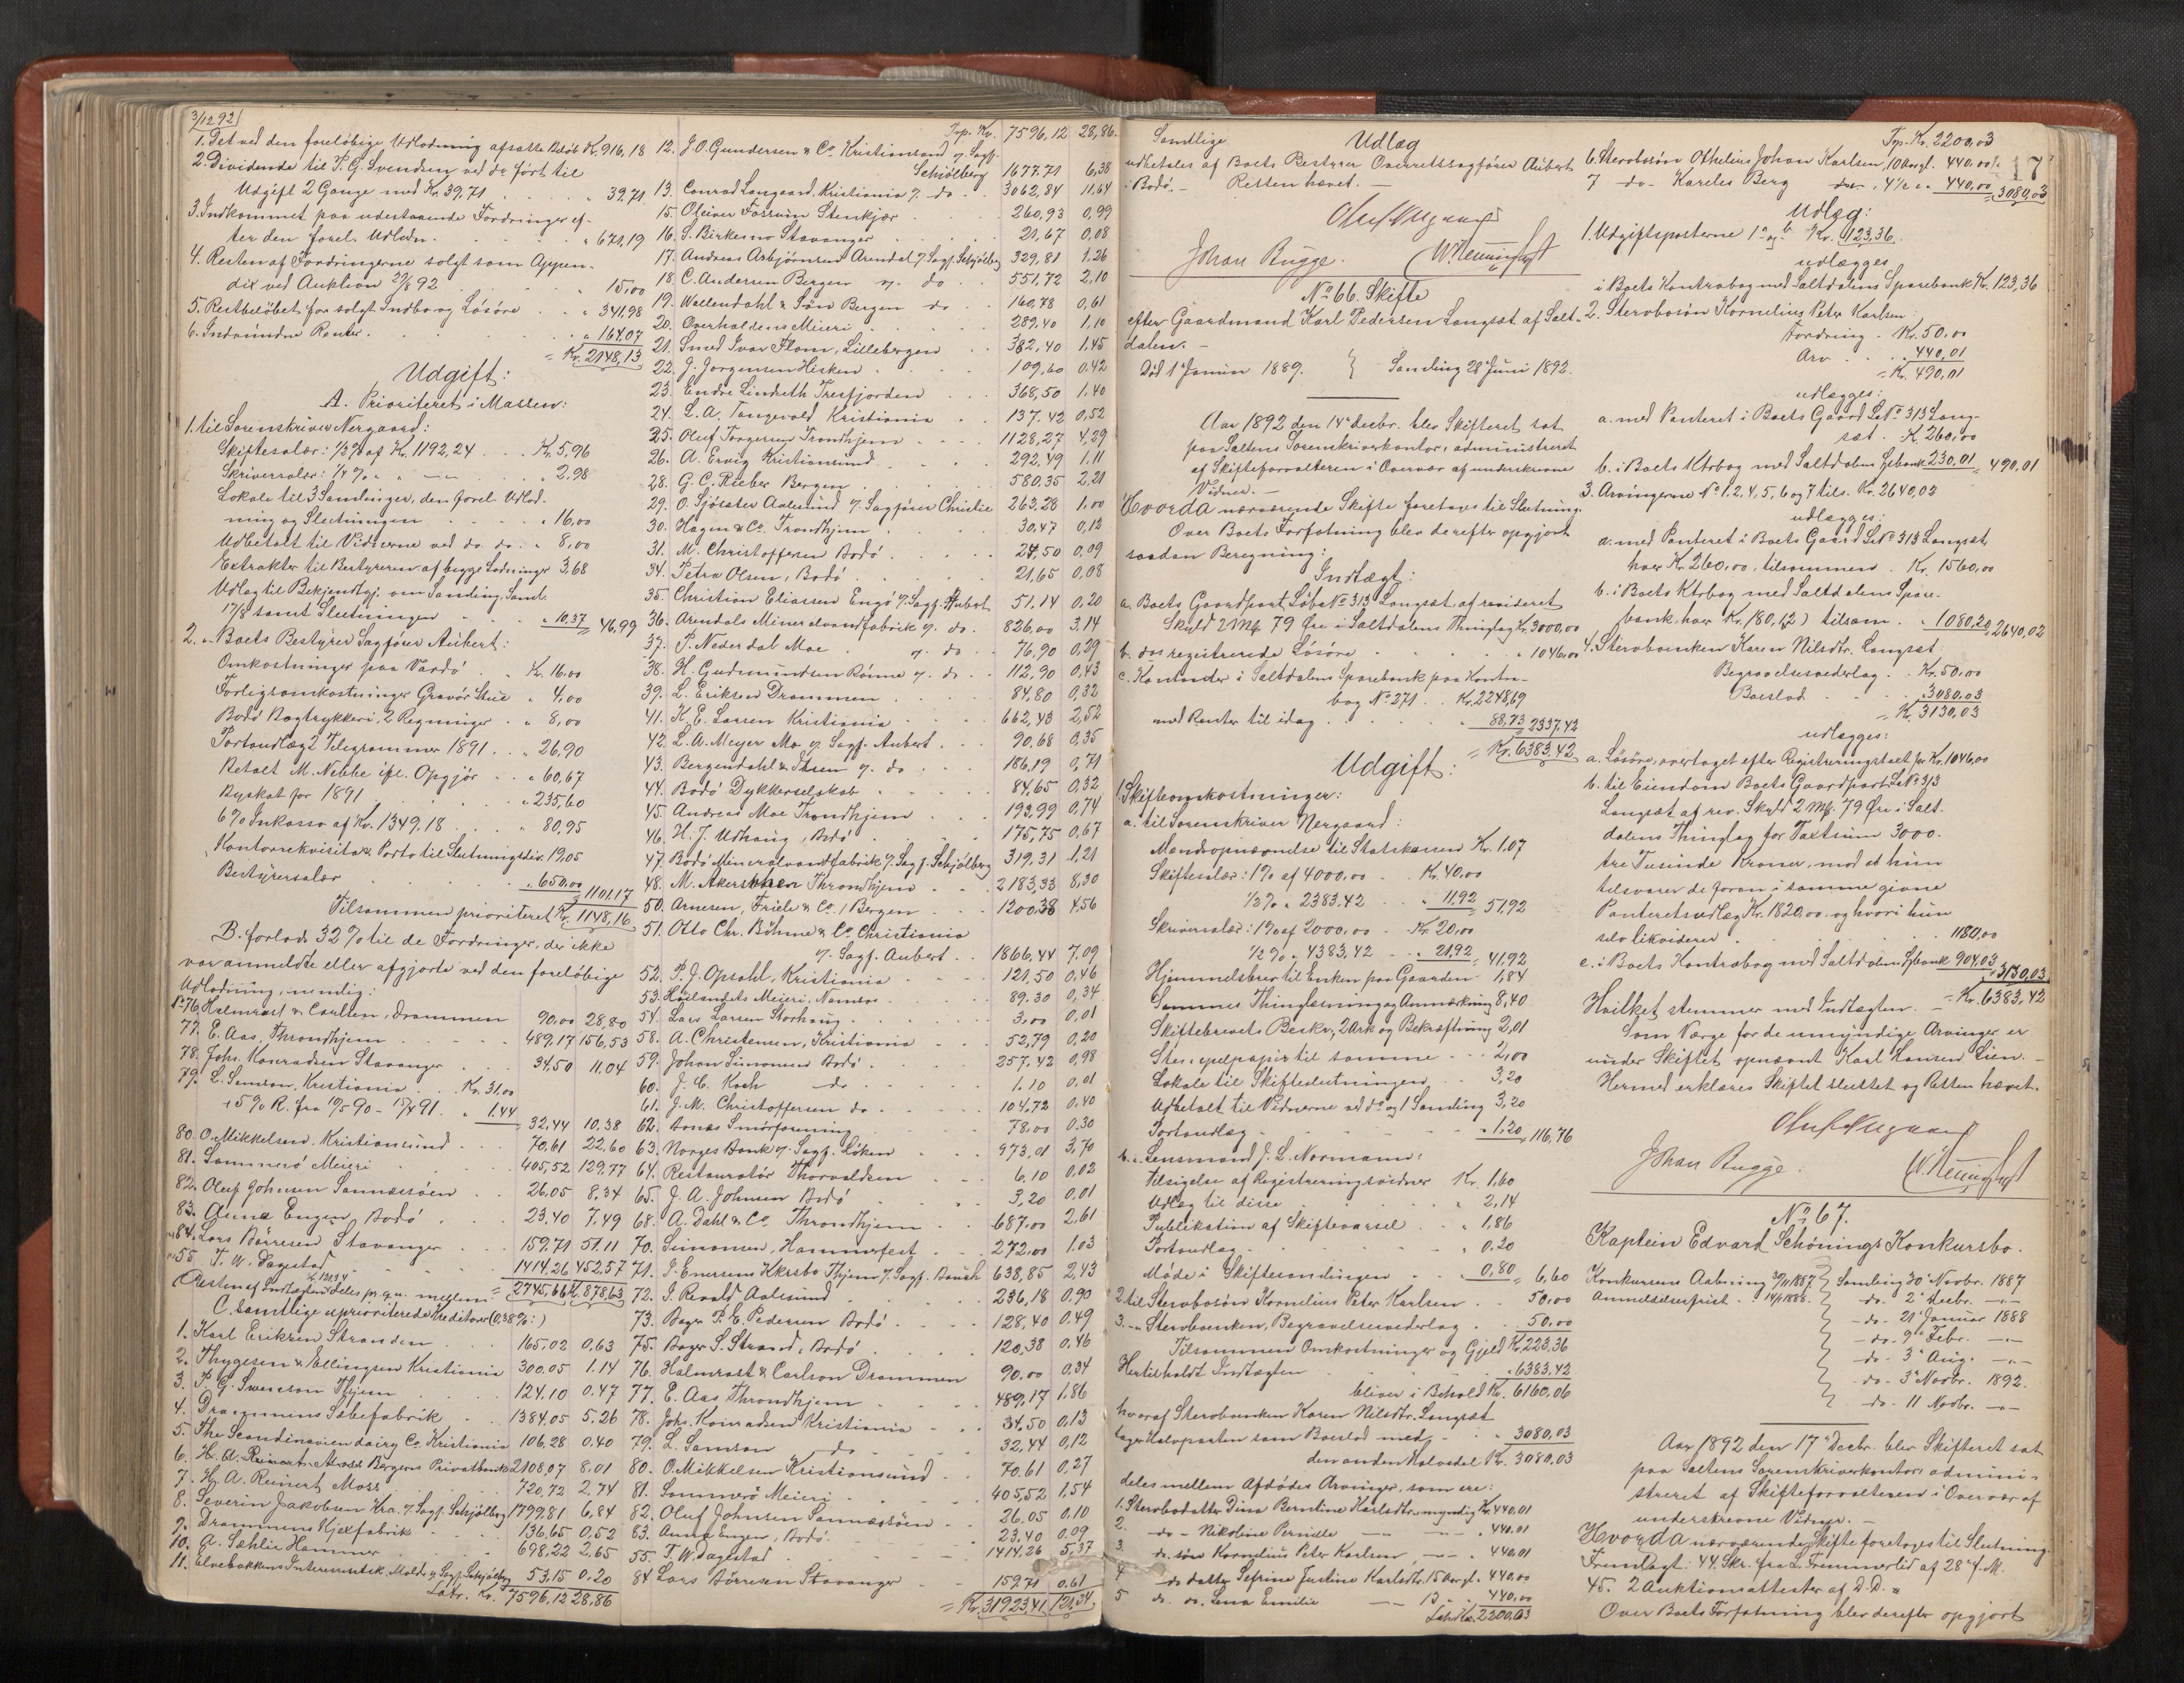 3/12 92
1. Det ved den foreløbige Udlodning afsatte Beløb Kr. 916,18
2. Dividende til P. G. Svendsen ved do ført til
Udgift 2 Gange med Kr. 39,71 . . . " 39,71
3. Indkommet paa udestaaende Fordringer ef-
ter den forel. Udlodn. . . . " 671,19
4. Resten af Fordringerne solgt som Appen-
dix ved Auktion 29/8 92 . . " 15,00
5. Restbeløbet for solgt Indbo og Løsøre . . " 341,98
6. Indvundne Renter . . . " 164,07
= Kr. 2148,13
Udgift:
A. Prioriteret i Massen:
1. til Sorenskriver Nergaard:
Skiftesalær: 1/2 % af Kr. 1192,24 . . Kr. 5,96
Skriversalær: 1/4 % " " — " — . . " 2,98
Lokale til 3 Samlinger, den forel. Udlod-
ning og Slutningen . . . " 16,00
Udbetalt til Vidnerne ved do. do. " 8,00
Extrakter til Bestyreren af begge Lodninger 3,68
Udlæg til Bekjendtgj. om Samling, Saml.
17/8 samt Slutningen . . " 10,37 = 46,99
2. " Boets Bestyrer Sagfører Aubert:
Omkostninger paa Vardø . Kr. 16,00
Forligsomkostninger Gravør Stue " 4,00
Bodø Bogtrykkeri, 2 Regninger . " 8,00
Portoudlæg & Telegrammer 1891 . . " 26,90
Betalt M. Nebbe ifl. Opgjør . . " 60,67
Byskat for 1891 . . . " 235,60
6 % Inkasso af Kr. 1349,18 . . " 80,95
Kontorrekvisita & Porto til Slutningsdiv. 19,05
Bestyrersalær . . . " 650,00 = 1101,17
Tilsammen prioriteret Kr. 1148,16
B. forlods 32 % til de Fordringer, der ikke
var anmeldte eller afgjorte ved den foreløbige
Udlodning, nemlig:
No 76. Halmrast & Carlsen, Drammen 90,00 28,80
77. E. Aas, Throndhjem . . . 489,17 156,53
78. Johs. Konradsen Stavanger . . 34,50 11,04
79. L. Samson, Kristiania . Kr. 31,00
+ 5 % R. fra 19/5 90 - 15/4 91 . " 1,44 32,44 10,38
80. O. Mikkelsen, Kristiansund . . 70,61 22,60
81. Sommerø Meieri . . . 405,52 129,77
82. Oluf Johnsen Sannæssøen . . 26,05 8,34
83. Anna Engen, Bodø . . . 23,40 7,49
84. Lars Børresen Stavanger . . 159,71 51,11
55 T. W. Dagestad . . . 1414,26 452,57
Resten af Indtægten deles p. q. u. mellem = 2745,66 Kr. 878,63
C. samtlige upriorierede Kreditorer (0,38 %:)
1. Karl Eriksen Stranden . . 165,02 0,63
2. Thygesen & Ellingsen Kristiania 300,05 1,14
3. P. G. Svenson Thjem . . 124,10 0,47
4. Drammens Sæbefabrik . . 1384,05 5,26
5. The Scandinavien dairy Co. Kristiania 106,28 0,40
6. H. A. Reinert Moss Bergens Privatbank 2108,07 8,01
7. H. A. Reinert Moss . . . 720,72 2,74
8. Severin Jakobsen Kra. v. Sagf. Schjølberg 1799,81 6,84
9. Drammens Kjexfabrik . . 136,65 0,52
10. A. Sæhlie Hammer . . . 698,22 2,65
11. Elvebakkens Molde v. Sagf. Schjølberg 53,15 0,20
Latr. Kr. 7596,12 28,86
Trp. Kr. 7596,12 28,86
12. J. O. Gundersen & Co. Kristiansand v. Sagf.
Schjølberg 1677,71 6,38
13. Conrad Langaard, Kristiania v. do . . 3062,84 11,64
15. Oleiver Fossum Stenkjær . . 260,93 0,99
16. S. Birkesno Stavanger . . . 21,67 0,08
17. Andreas Asbjørnsen Arendal v. Sagf. Schjølberg 329,81 1,26
18. C. Andersen Bergen v. do . . 551,72 2,10
19. Wallendahl & Søn Bergen do . . 160,78 0,61
20. Overhaldens Meieri . . . 289,40 1,10
21. Smed Ivar Flom, Lillebergen . . 382,40 1,45
22. J. Jørgensen Hisken . . . 109,60 0,42
23. Endre Lindseth Tresfjorden . . 368,50 1,40
24. L. A. Tangevald Kristiania . . 137,42 0,52
25. Oluf Torgersen Trondhjem . . 1128,27 4,29
26. A. Ervig Kristiansund . . . 292,49 1,11
28. G. C. Rieber Bergen . . . 580,35 2,21
29. O. Sjøsæter Aalesund v. Sagfører Christie 263,28 1,00
30. Hagen & Co. Trondhjem . . . 30,47 0,12
31. M. Christoffersen Bodø . . . 24,50 0,09
34. Petra Olsen, Bodø . . . 21,65 0,08
35. Christian Eliassen Engø v. Sagf. Aubert 51,14 0,20
36. Arendals Mineralvandfabrik v. do. 826,00 3,14
37. P. Nederdal Moe . v. do . . 76,90 0,29
38. H. Gudmundsen Rønne v. do . . 112,90 0,43
39. L. Eriksen Drammen . . . 84,80 0,32
41. K. E. Larsen Kristiania . . . 662,43 2,52
42. L. A. Meyer Mo v. Sagf. Aubert . . 90,68 0,35
43. Bergendahl & Ihsen v. do . . 186,19 0,71
44. Bodø Dykkerselskab . . . 84,65 0,32
45. Andreas Moe Trondhjem . . 193,99 0,74
46. H. J. Udhaug, Bodø . . . 175,75 0,67
47. Bodø Mineralvandfabrik v. Sagf. Schjølberg 319,31 1,21
48. M. Akershnen Throndhjem . . 2183,33 8,30
50. Arnesen, Friele & Co., Bergen . . 1200,38 4,56
51. Otto Chr. Böhme & Co. Christiania
v. Sagf. Aubert . . 1866,44 7,09
52. P. J. Opsahl, Kristiania . . . 121,50 0,46
53. Høilandets Meieri, Namsos . . 89,30 0,34
54. Lars Larsen Storhaug . . . 3,00 0,01
58. A. Christensen, Kristiania . . 52,79 0,20
59. Johan Simonsen Bodø . . . 257,42 0,98
60. J. C. Koch — do — . . 1,10 0,01
61. J. M. Christoffersen do . . . 104,72 0,40
62. Bonæs Smørforening . . . 78,00 0,30
63. Norges Bank v. Sagf. Løken . . 973,01 3,70
64. Restauratør Thorvaldsen . . 6,10 0,02
65. J. A. Johnsen Bodø . . . 3,20 0,01
68. A. Dahl & Co. Throndhjem . . 687,00 2,61
70. Simonsen, Hammerfest . . 272,00 1,03
71. P. Enersens Kkrsbo Thjem v. Sagf. Bauch 638,85 2,43
72. S. Revold Aalesund . . . 236,18 0,90
73. Bager P. E. Pedersen Bodø . . 128,40 0,49
75. Bager S. Strand, Bodø . . . 120,38 0,46
76. Halmrast & Carlson Drammen 90,00 0,34
77. E. Aas Throndhjem . . . 489,17 1,86
78. Johs. Konradsen Kristiania . . 34,50 0,13
79. L. Samson do . . 32,44 0,12
80. O. Mikkelsen Kristiansund . . 70,61 0,27
81. Sommerø Meieri . . . 405,52 1,54
82. Oluf Johnsen Sannæssøen . . 26,05 0,10
83. Anna Engen, Bodø . . . 23,40 0,09
55. T. W. Dagestad . . . 1414,26 5,37
84 Lars Børresen Stavanger . . 159,71 0,61
= Kr. 31923,41 121,34
Samtlige Udlæg
udbetales af Boets Bestyrer Overretssagfører Aubert
i Bodø. — Retten hævet. —
Johan Bugge.
No 66. Skifte
efter Gaardmand Karl Pedersen Langsæt af Salt-
dalen. —
Død 1' Januar 1889. } Samling 28' Juni 1892.
Aar 1892 den 14' decbr. blev Skifteret sat
paa Saltens Sorenskriverkontor, administreret
af Skifteforvalteren i Overvær af underskrevne
Vidner. —
Hvorda nærværende Skifte foretages til Slutning.
Over Boets Forfatning blev derefter opgjort
saadan Beregning:
Indtægt:
a. Boets Gaardpart Løbe No 313 Langsæt af revideret
Skyld 2 Mk 79 Øre i Saltdalens Thinglag Kr. 3000,00
b. det registrerede Løsøre . . . " 1046,00
c. Kontanter i Saltdalens Sparebank paa Kontra-
bog No 271 . . Kr. 2248,69
med Renter til idag . . . " 88,73 = 2337,42
= Kr. 6383,42
Udgift:
1. Skifteomkostninger:
a. til Sorenskriver Nergaard:
Mandsopnævnelse til Statskassen Kr. 1,07
Skiftesalær: 1 % af 4000,00 . . Kr. 40,00
1/2 % " 2383,42 . . " 11,92 = 51,92
Skriversalær: 1 % af 2000,00 . . Kr. 20,00
1/2 % " 4383,42 . . " 21,92 = 41,92
Hjemmelsbrev til Enken paa Gaarden 1,84
Sammes Thinglæsning og Anmærkning 8,40
Skiftebrevets Beskr., 2 Ark og Bekræftning 2,01
Stempelpapir til samme . . . 2,00
Lokale til Skifteslutningen . . 3,20
Udbetalt til Vidnerne ved do og 1 Samling 3,20
Portoudlæg . . . " 1,20 = 116,76
b. " Lensmand J. L. Normann:
Tilsigelse af Registreringsvidner Kr. 1,60
Udlæg til disse . . . " 2,14
Publikation af Skiftevarsel . . " 1,86
Portoudlæg . . . " 0,20
Møde i Skiftesamlingen . . " 0,80 = 6,60
2. til Stervbosøn Kornelius Peter Karlsen . . 50,00
3. " Stervboenken, Begravelsesvederlag . . 50,00
Tilsammen Omkostninger og Gjæld Kr. 223,36
Hertilholdt Indtægten . . " 6383,42
bliver i Behold Kr. 6160,06
hvoraf Stervboenken Karen Nilsdtr. Langsæt
tager Halvparten som Boeslod med . . " 3080,03
den anden Halvdel Kr. 3080,03
deles mellem Afdødes Arvinger, som ere:
1. Stervbodatter Dina Berntine Karlsdtr. myndig Kr. 440,01
2. — do — Nikoline Pernille — " — " 440,01
3. do. søn Kornelius Peter Karlsen — " — " 440,01
4 do datter Sefrine Justine Karlsdtr. 15 Aar gl. " 440,00
5 do. do. Lena Emilie — " — 13 . . " 440,00
Latr. Kr. 2200,03
Trp. Kr. 2200,03
17
6. Stervbosøn Othelius Johan Karlsen, 10 Aar gl. 440,00
7 — do — Kareles Berg do — , 4 1/2 " " 440,00 = 3080,03
Udlæg:
1. Udgiftsposterne 1 a og b Kr. 123,36.
udlægges
i Boets Kontrabog med Saltdalens Sparebank Kr. 123,36
2. Stervbosøn Kornelius Peter Karlsen:
Fordring . Kr. 50,00
Arv . . . " 440,01
= Kr. 490,01
udlægges:
a. med Panteret i Boets Gaard L. No 313 Lang-
sæt . K. 260,00
b. i Boets Ktrbog med Saltdalens Spbank 230,01 = 490,01
3. Arvingerne No 1, 2, 4, 5, 6 og 7 tils. Kr. 2640,02
udlægges:
a. med Panteret i Boets Gaard L. No 313 Langsæt
hver Kr. 260,00, tilsammen . Kr. 1560,00
b. i Boets Ktrbog med Saltdalens Spare-
bank, hver Kr. 180, tilsam. . " 1080,20 = 2640,02
4. Stervboenken Karen Nilsdtr. Langsæt:
Begravelsesvederlag . . Kr. 50,00
Boeslod . . . " 3080,03
= Kr. 3130,03
udlægges:
a. Løsøre, overtaget efter Registreringstaxt for Kr. 1046,00
b. til Eiendom Boets Gaardpart L. No 313
Langsæt af rev. Skyld 2 Mk. 79 Øre i Salt-
dalens Thinglag for Taxtsum 3000.
tre Tusinde Kroner, mod at hun
tilsvarer de foran i samme givne
Panteretsudlæg Kr. 1820,00. og hvori hun
selv likviderer . . . 1180,00
c. i Boets Kontrabog med Saltdalens Spbank 904,03 = 3130,03
= Kr. 6383,42
Hvilket stemmer med Indtægten. —
Som Værge for de umyndige Arvinger er
under Skiftet opnævnt Karl Hansen Lien. —
Hermed erklæres Skiftet sluttet og Retten hævet.
Johan Bugge.
No 67.
Kaptein Edvard Schønings Konkursbo.
Konkursens Aabning 30/11 1887 } Samling 30' Novbr. 1887
Anmeldelsesfrist . 14/1 1888. } — do. — 2' decbr. — " —
— do. — 21' Januar 1888
— do. — 9' Febr. — " —
— do. — 3' Aug. — " —
— do. — 3' Novbr. 1892.
— do. — 11 Novbr. — " —
Aar 1892 den 17' Decbr. blev Skifteret sat
paa Saltens Sorenskriverkontor, admini-
streret af Skifteforvalteren i Overvær af
underskrevne Vidner. —
Hvorda nærværende Skifte foretages til Slutning.
Fremlagt: 44. Skr. fra L. Temmerlid af 28' f. M.
45. 2 Auktionsattester af D. D. "
Over Boets Forfatning blev derefter opgjort